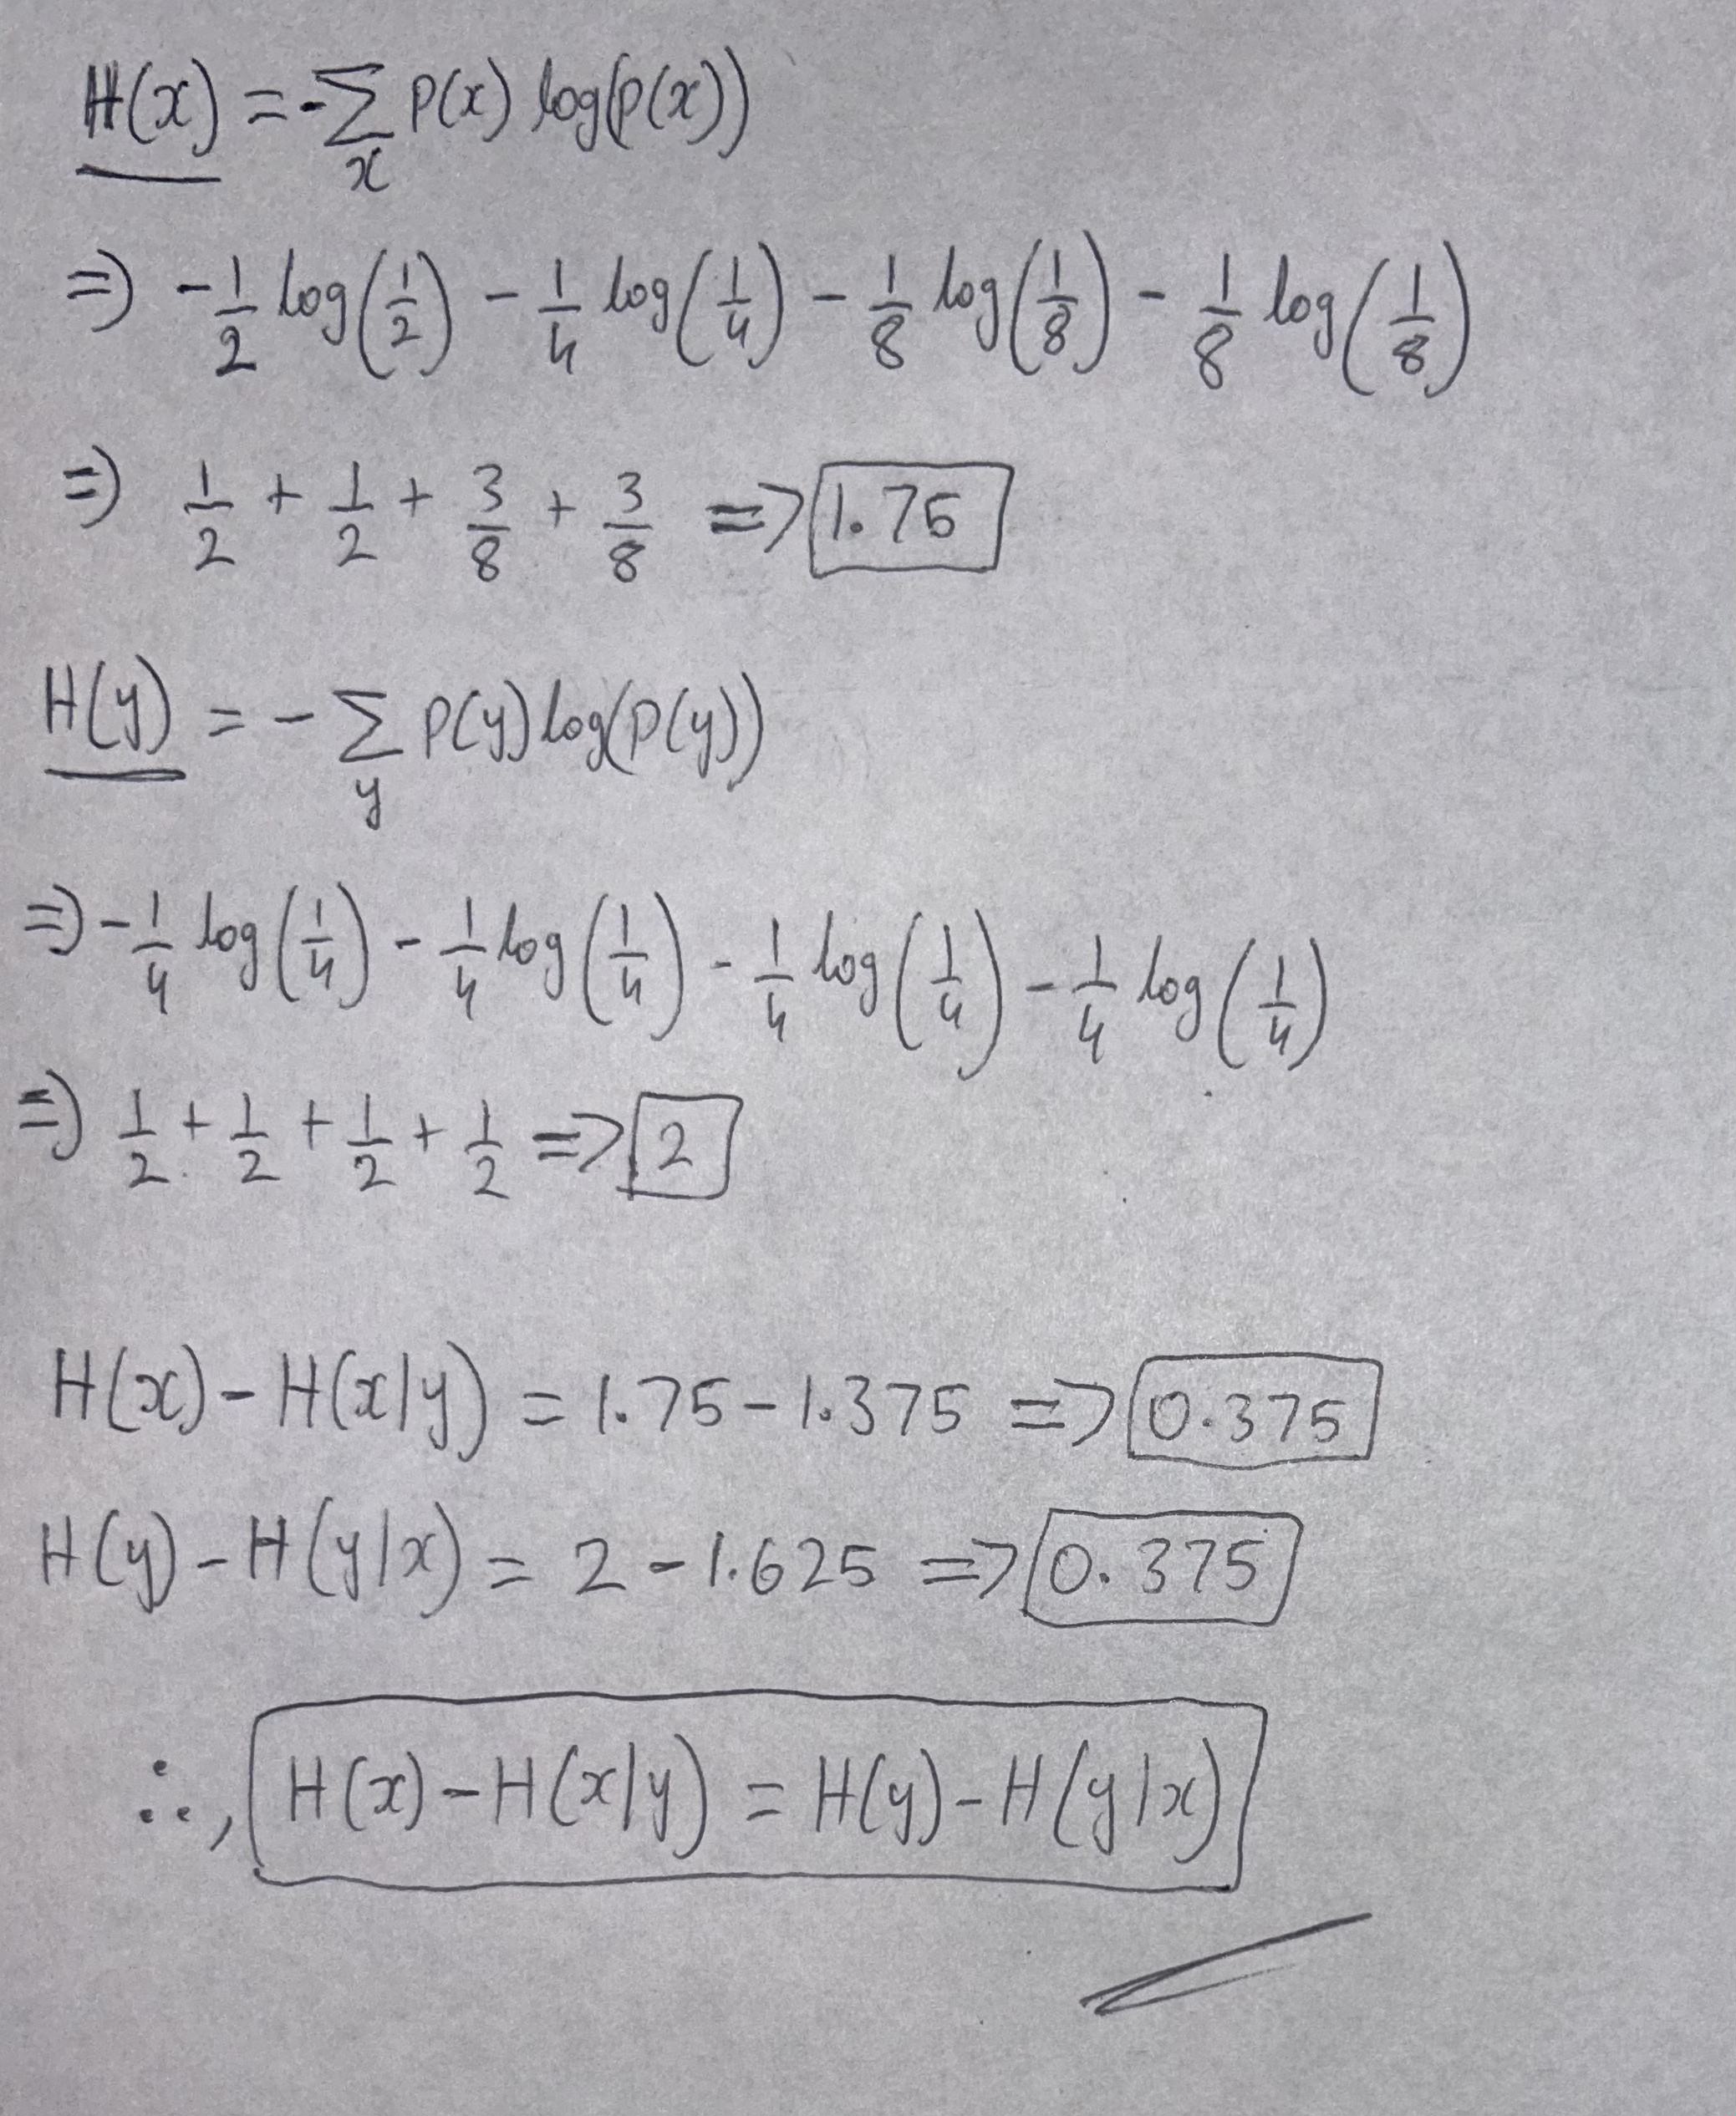 H(x) = -∑_x P(x) log(p(x))
=> -1/2 log(1/2) - 1/4 log(1/4) - 1/8 log(1/8) - 1/8 log(1/8)
=> 1/2 + 1/2 + 3/8 + 3/8 => 1.75
H(y) = - ∑_y P(y) log(P(y))
=> -1/4 log(1/4) - 1/4 log(1/4) - 1/4 log(1/4) - 1/4 log(1/4)
=> 1/2 + 1/2 + 1/2 + 1/2 => 2
H(x) - H(x|y) = 1.75 - 1.375 => 0.375
H(y) - H(y|x) = 2 - 1.625 => 0.375
∴, H(x) - H(x|y) = H(y) - H(y|x)